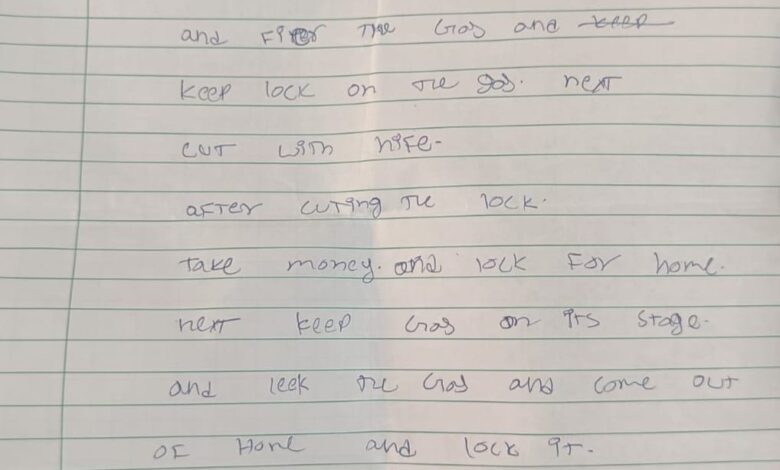 and Fiter The Gas and keep
keep lock on The gas. next
cut with nife-
after cuting The lock.
Take money. and lock For home.
next keep Gas on its stage.
and leek The Gas and come out
of Home and lock it.